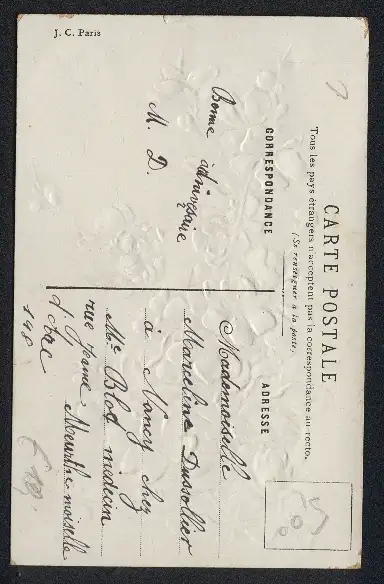 J. C. Paris
CARTE POSTALE
Tous les pays étrangers n'acceptent pas la correspondance au recto.
(Se renseigner à la poste).
CORRESPONDANCE
ADRESSE
Bonne aniversaire
M. D.
Mademoiselle
Marceline Dussollier
à Nancy chez
Mr Blod médecin
rue Jeanne
d'Arc
198
Meurthe moiselle